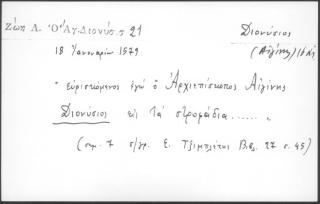 Ζώη Λ. Ὁ Ἁγ. Διονύσ. σ 21
Διονύσιος
(Αἰγίνης) 16 αἰ.
18 Ἰανουαρίου 1579
"εὑρισκόμενος ἐγώ ὁ Ἀρχιεπίσκοπος Αἰγίνης
Διονύσιος εἰς τά στρομάδια...... "
(σημ. 7 σ/γρ. Ε. Τζιμπλέτης Β.ος. 27 σ. 45)